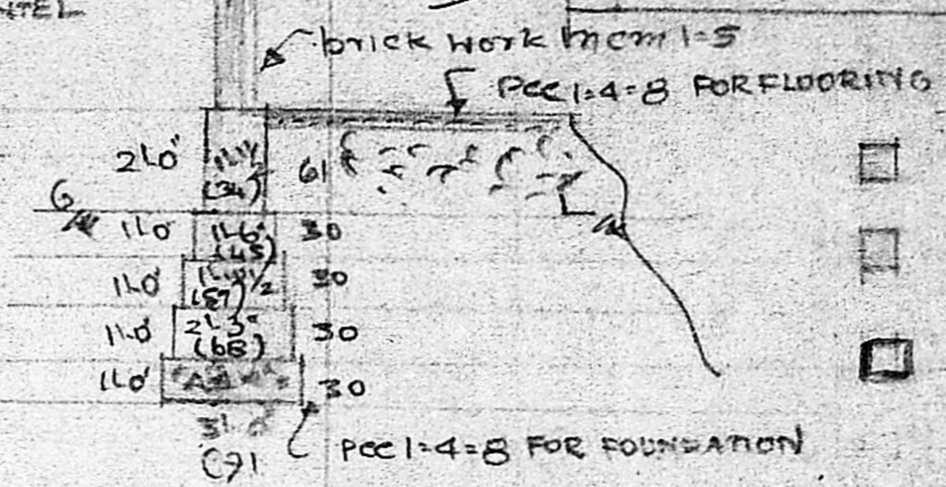 brick work in cm 1=5
PCC 1=4=8 FOR FLOORING
2'-0"
(34)
61
G
1'-0
1'-6"
(45)
30
1'-0
(57)
30
1'-0
2'-3"
(68)
30
1'-0
30
PCC 1=4=8 FOR FOUNDATION
(91